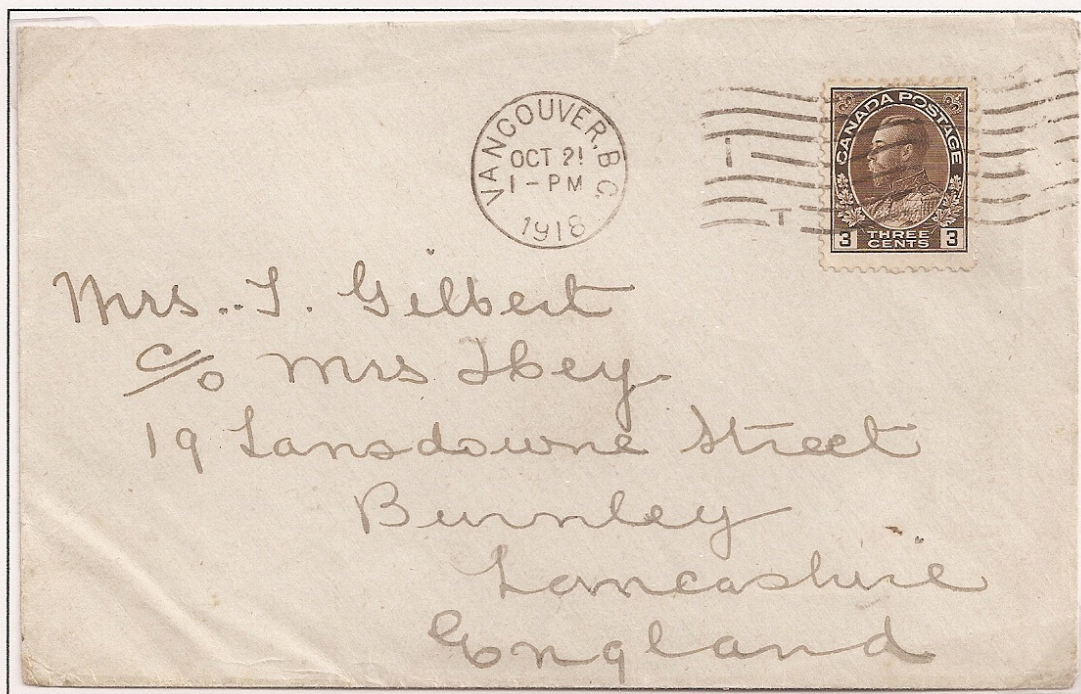 VANCOUVER, B.C.
OCT 21
1 - PM
1918
I
T
CANADA POSTAGE
3 THREE CENTS 3
Mrs.. T. Gilbert
c/o Mrs Ibey
19 Lansdowne Street
Burnley
Lancashire
England